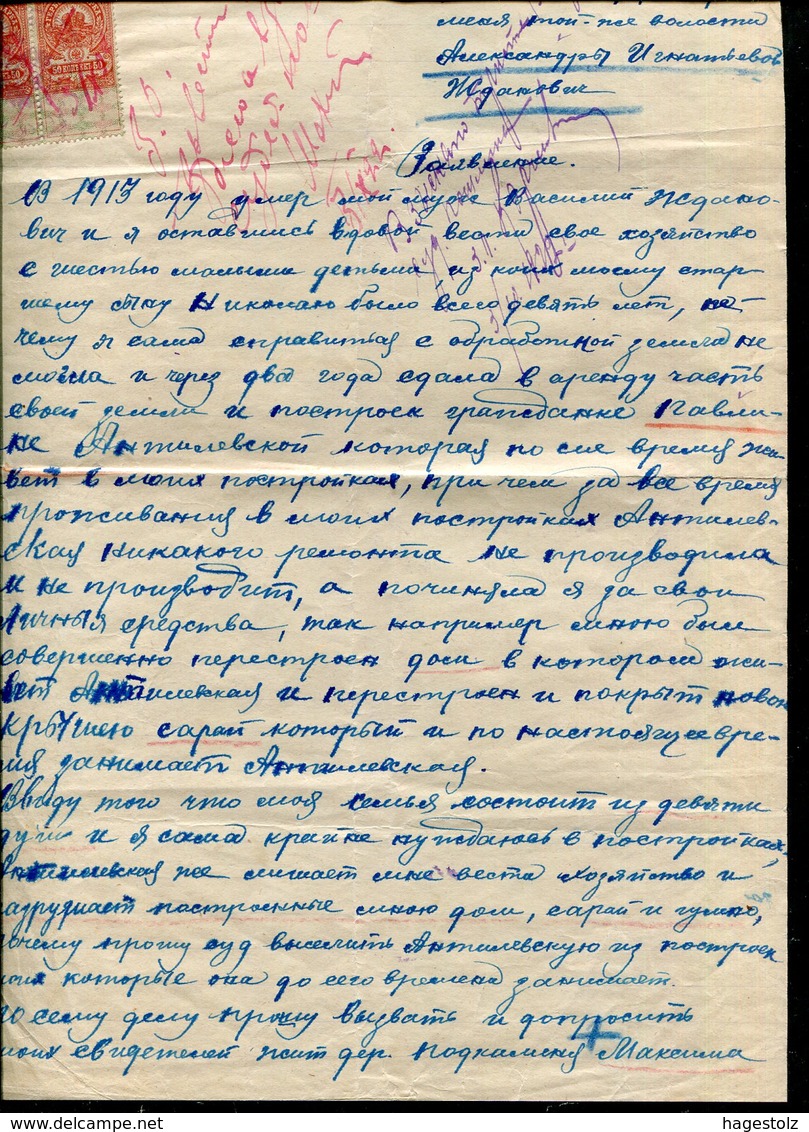 меня той-же волости
Александры Игнатьевой
Жданович
Заявление.
В 1913 году умер мой муж Василий Ждано-
вич и я оставшись вдовой вести свое хозяйство
с шестью малыми детьми из коих моему стар-
шему сыну Николаю было всего девять лет, по-
чему я сама справиться с обработкой земли не
могла и через два года сдала в аренду часть
своей земли и построек гражданке Павли-
не Антилевской которая по сие время жи-
вет в моих постройках, при чем за все время
проживания в моих постройках Антилев-
ская никакого ремонта не производила
и не производит, а починяла я за свои
личныя средства, так например мною был
совершенно перестроен дом в котором жи-
вет Антилевская и перестроен и покрыт новой
крышею сарай который и по настоящее вре-
мя занимает Антилевская.
Ввиду того что моя семья состоит из девяти
душ и я сама крайне нуждаюсь в постройках,
Антилевская же лишает мне вести хозяйство и
разрушает построенные мною дом, сарай и гумно,
почему прошу суд выселить Антилевскую из построек
моих которые она до сего времени занимает.
По сему делу прошу вызвать и допросить
моих свидетелей жит. дер. Подкаменя Максима
50 КОПЕЕК 50
hagestolz